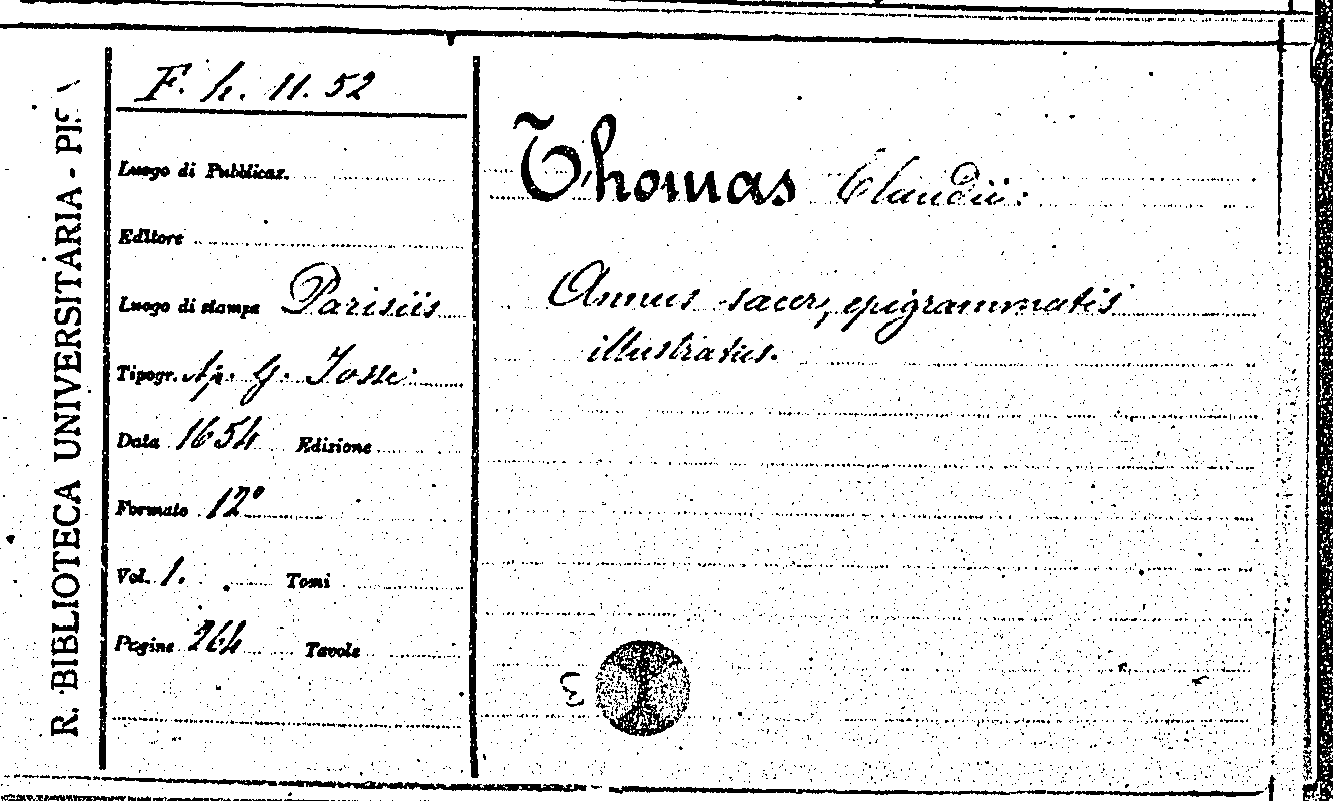 R. BIBLIOTECA UNIVERSITARIA - PIS
F. h. 11. 52
Luogo di Pubblicaz.
Editore
Luogo di stampa Parisiis
Tipogr. Ap. G. Josse
Data 1654 Edizione
Formato 12°
Vol. 1. Tomi
Pagine 264 Tavole
Thomas Claudii:
Annus sacer, epigrammatis
illustratus.
3